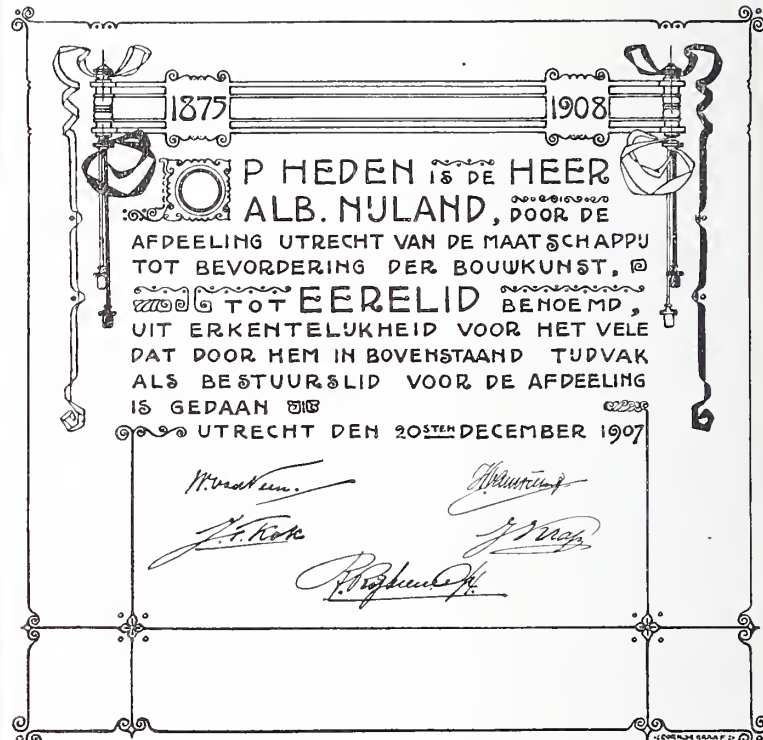 1875 1908
OP HEDEN IS DE HEER
ALB. NIJLAND, DOOR DE
AFDEELING UTRECHT VAN DE MAATSCHAPPIJ
TOT BEVORDERING DER BOUWKUNST,
TOT EERELID BENOEMD,
UIT ERKENTELIJKHEID VOOR HET VELE
DAT DOOR HEM IN BOVENSTAAND TIJDVAK
ALS BESTUURSLID VOOR DE AFDEELING
IS GEDAAN
UTRECHT DEN 20STEN DECEMBER 1907
J. F. Kok